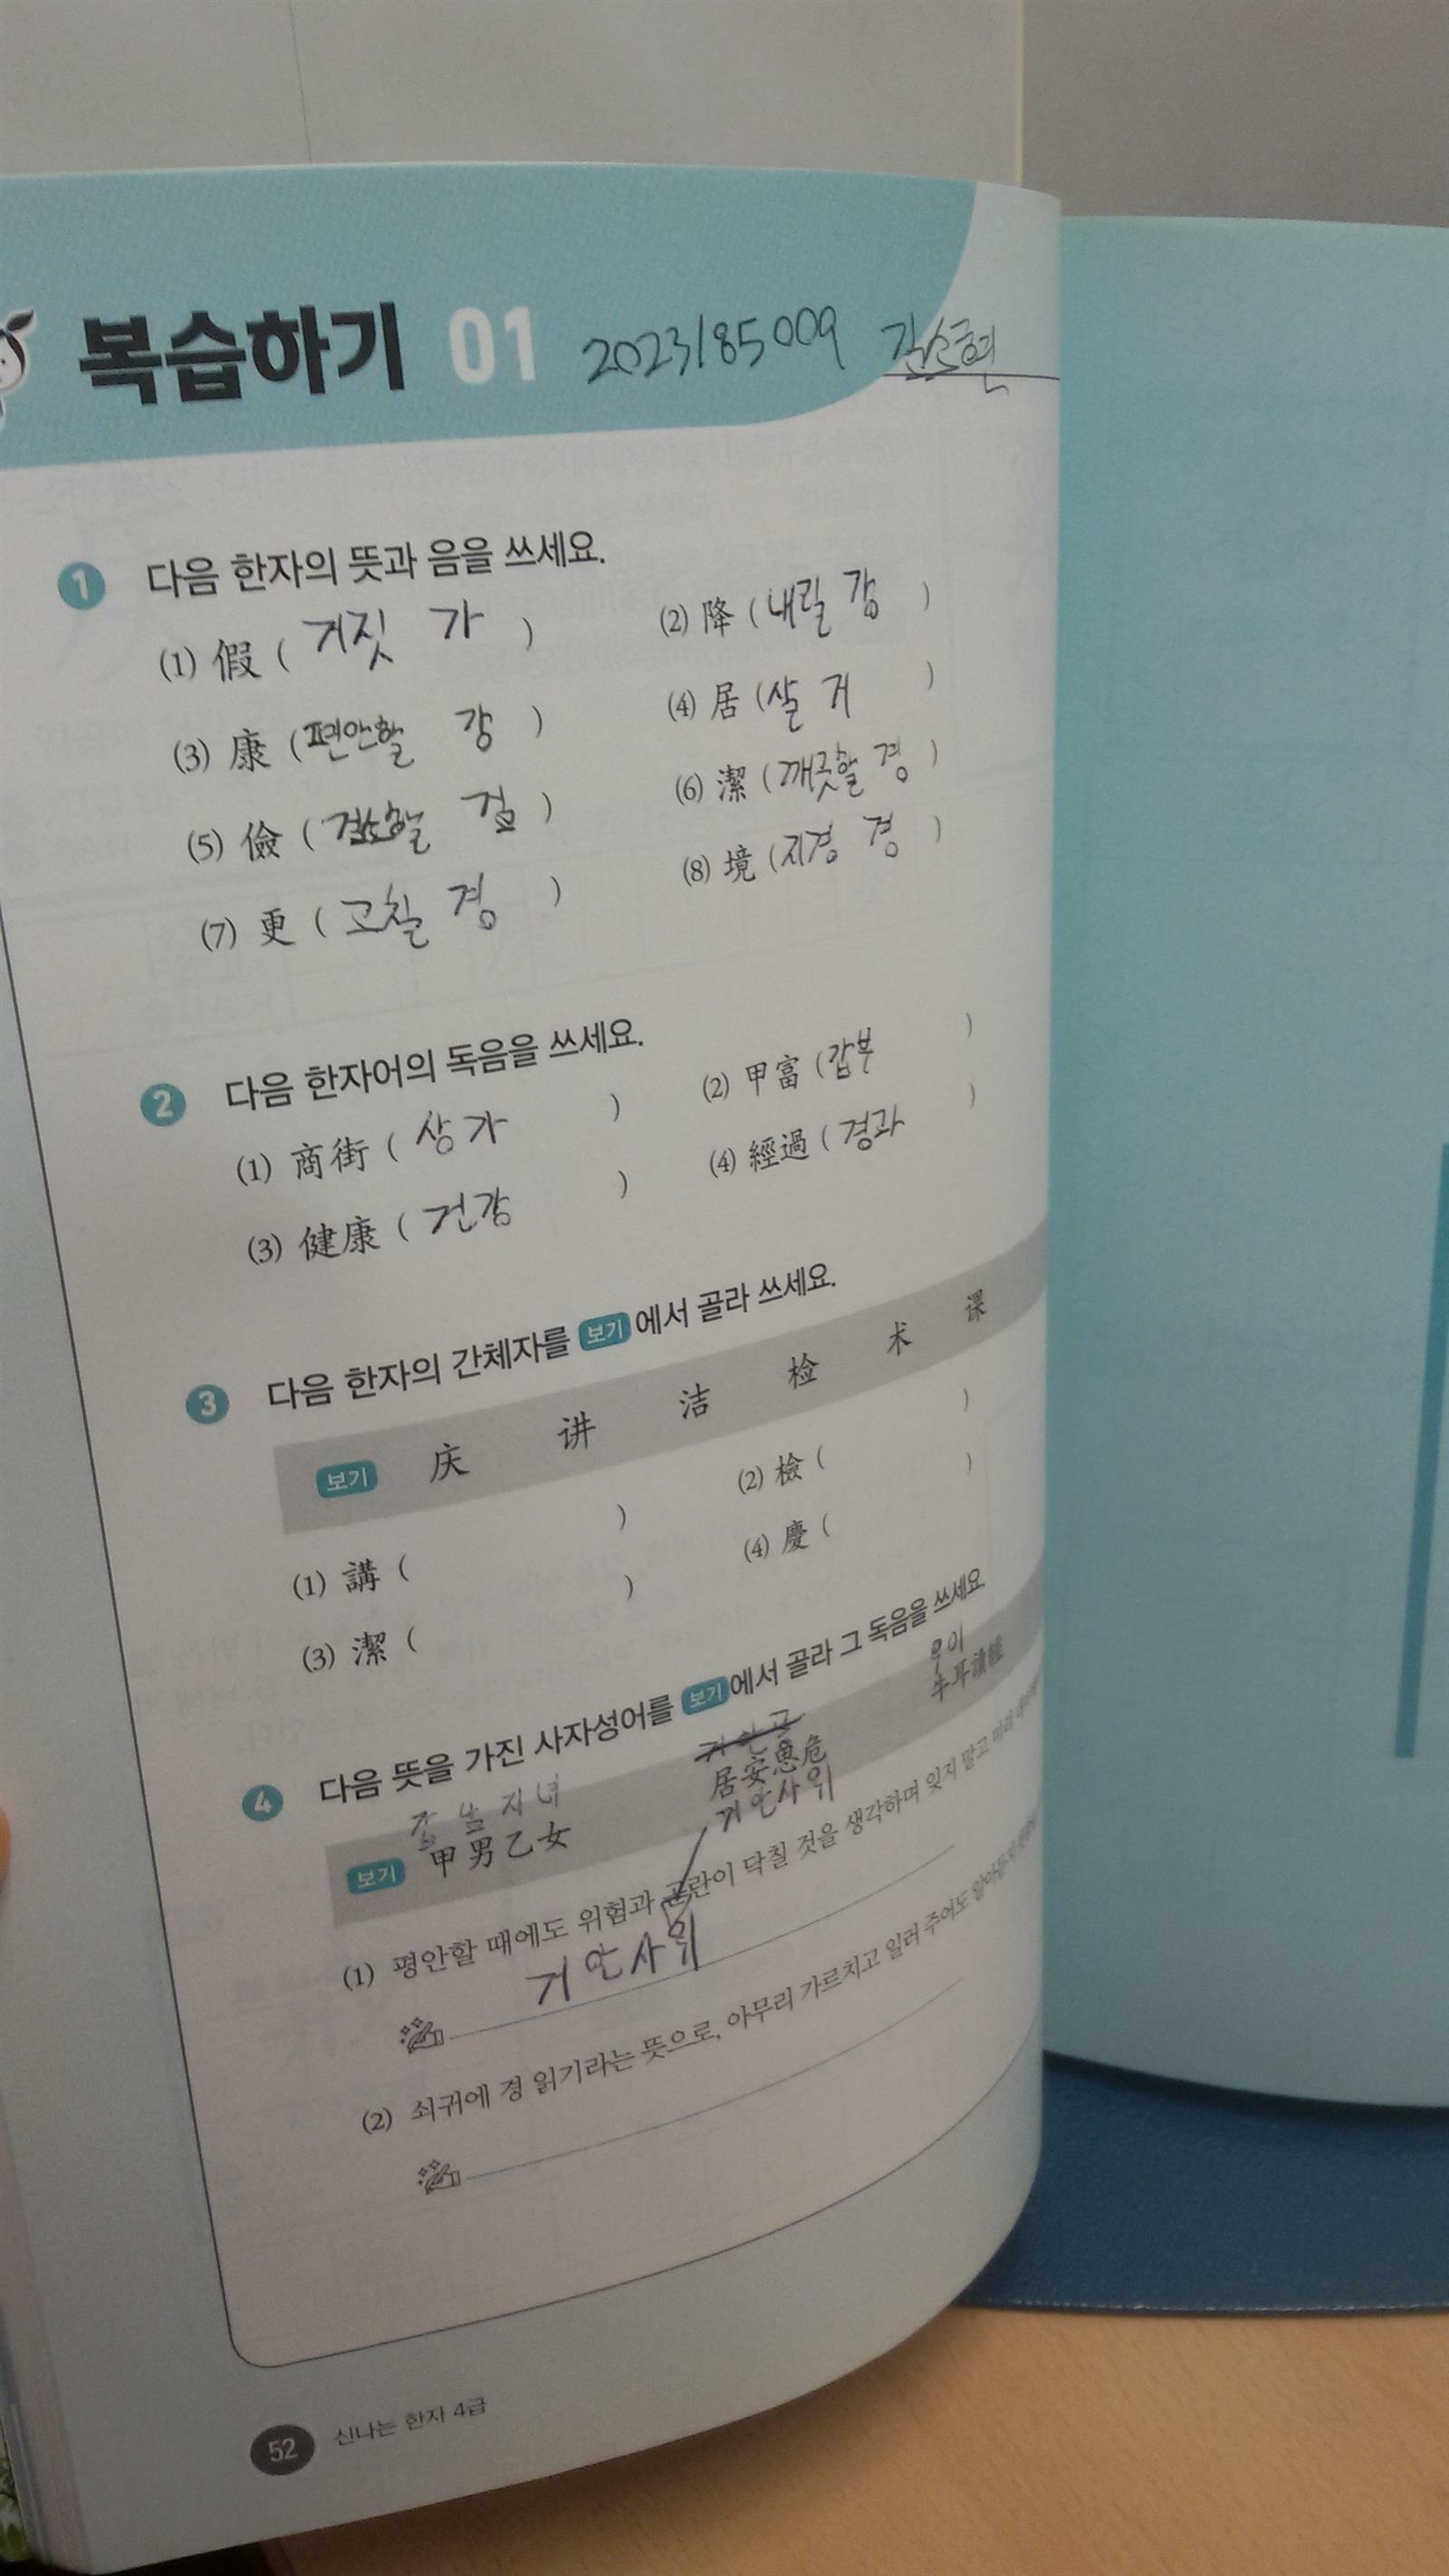 복습하기 01 2023185009 김소현
1 다음 한자의 뜻과 음을 쓰세요.
(1) 假 ( 거짓 가 )
(2) 降 ( 내릴 강 )
(3) 康 ( 편안할 강 )
(4) 居 ( 살 거 )
(5) 儉 ( 검소할 검 )
(6) 潔 ( 깨끗할 경 )
(7) 更 ( 고칠 경 )
(8) 境 ( 지경 경 )
2 다음 한자어의 독음을 쓰세요.
(1) 商街 ( 상가 )
(2) 甲富 ( 갑부 )
(3) 健康 ( 건강 )
(4) 經過 ( 경과 )
3 다음 한자의 간체자를 보기 에서 골라 쓰세요.
보기 庆 讲 洁 检 术 课
(1) 講 ( )
(2) 檢 ( )
(3) 潔 ( )
(4) 慶 ( )
4 다음 뜻을 가진 사자성어를 보기 에서 골라 그 독음을 쓰세요.
우이
보기 甲男乙女 居安思危 牛耳讀經
거안사위
(1) 평안할 때에도 위험과 곤란이 닥칠 것을 생각하며 잊지 말고 미리
거안사위
(2) 쇠귀에 경 읽기라는 뜻으로, 아무리 가르치고 일러 주어도
52 신나는 한자 4급